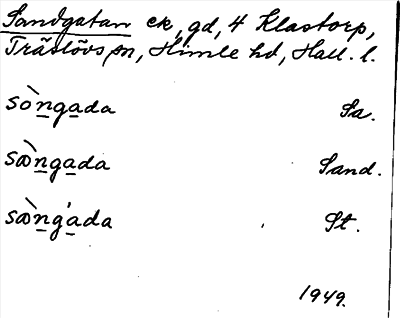 Sandgatan ek, gd, 4 Klastorp,
Träslövs sn, Himle hd, Hall. l.
so`ngada Sa.
sɷ`ngada Sand.
sɷ`ngada St.
1949.